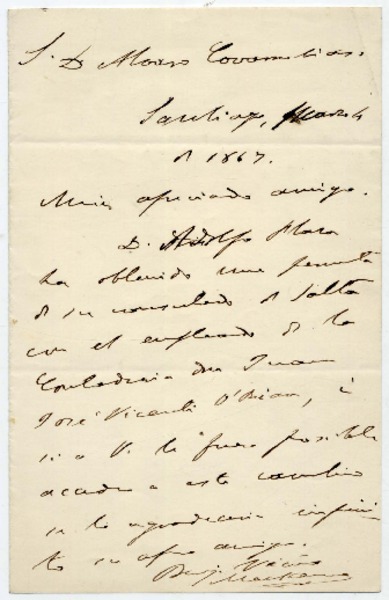 S. D. Alvaro Covarrubias.
Santiago, Marzo 4
de 1867.
Mui apreciado amigo.
D. Adolfo Plaza
ha obtenido una permuta
de su consulado de Salta
con el empleado de la
Contaduria don Juan
José Vicente O'Brian, i
si a V. le fuera posible
acceder a este cambio
se lo agradeceria infini-
to su afmo amigo.
Benj. Vicuña
Mackenna